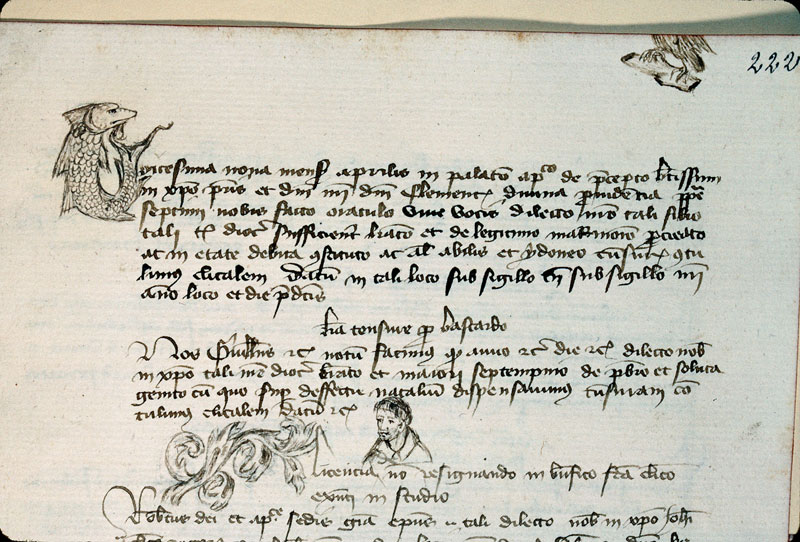 222
vicesima nona mensis aprilis in palacio apco de precepto btissimi
in xpo pris et dni nri dni Clementis divina providencia ppe
septimi nobis facto oraculo vive vocis dilecto nro tali filio
tali tc dioc sufficient lrato et de legitimo matrimonio procreato
ac in etate debita constituto ac al abilis et ydoneo tunsuram contu
limus clicalem datum in tali loco sub sigillo sub sigillo nri
anno loco et die predictis
lra tonsure pro bastardo
Nos Guillmus rc notum facimus q anno rc die rc dilecto nob
in xpo tali nre dioc lrato et maiori septempnio de pbro et soluta
genito cum quo sup deffectu natalium dispensavimus tunsuram con
tulimus clicalem datum rc
licencia non resignando in bnfico clico
exnti in studio
Robertus dei et aplice sedis gra epus tali dilecto nob in xpo Johi